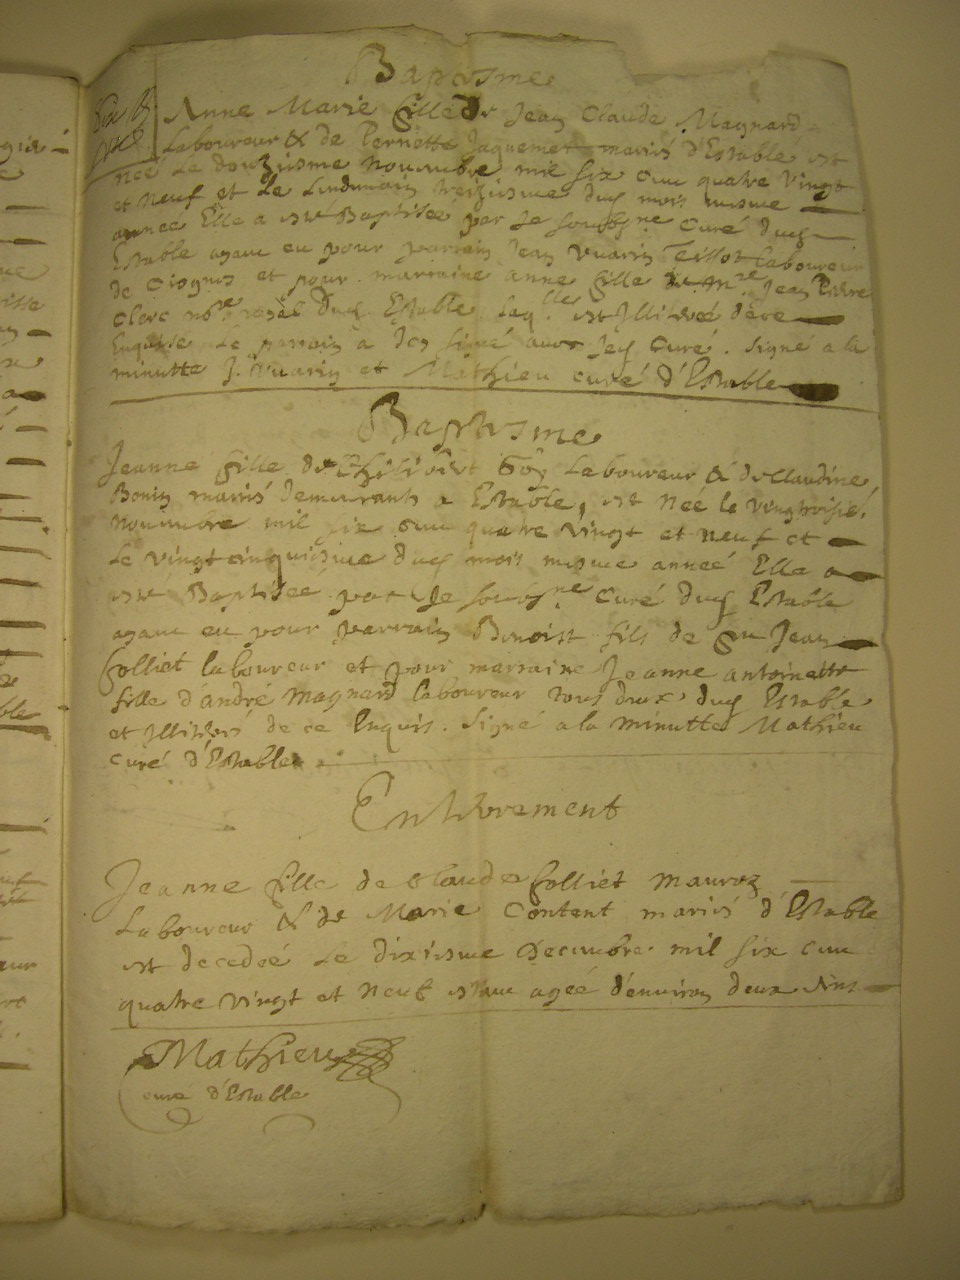 Baptesme
Anne Marie fille de Jean Claude Magnard
Laboureur & de Perriette Jaquemet mariés d'Estable est
neé Le douziesme nouembre mil six cent quatre vingt
et neuf et Le Lendemain treiziesme dud mois mesme
annee Elle a esté Baptiseé par Je soubsne. Curé dud
Estable ayant eu pour parrain Jean Vuarin Tissot laboureur
de et pour marraine anne fille de Mre. Jean Pierre
Clerc nore. royal dud Estable Laqlle. est Illitreé de ce
Enquise Le parrain a Icy signé auec Jey Curé. Signé a la
minutte J. Vuarin et Mathieu curé d'Estable
Baptesme
Jeanne fille de Philibert Goy Laboureur & de Claudine
Bonin mariés demeurants a Estable, est Neé le vingtroisie.
Nouembre mil six cent quatre vingt et neuf et
Le vingtcinquiesme dud mois mesme anneé Elle a
esté Baptiseé par Je soubsne. Curé dud Estable
ayant eu pour parrain Benoist fils de fu Jean
Colliet laboureur et pour marraine Jeanne antoinette
fille d'andré Magnard laboureur tous deux dud Estable
et Illitrés de ce Enquis. Signé a la minutte Mathieu
Curé d'Estable
Enterrement
Jeanne fille de Claude Colliet Mauroz
Laboureur & de Marie Content mariés d'Estable
est decedeé Le dixiesme Decembre mil six cent
quatre vingt et neuf estant ageé d'enuiron deux ans
Mathieu
curé d'Estable